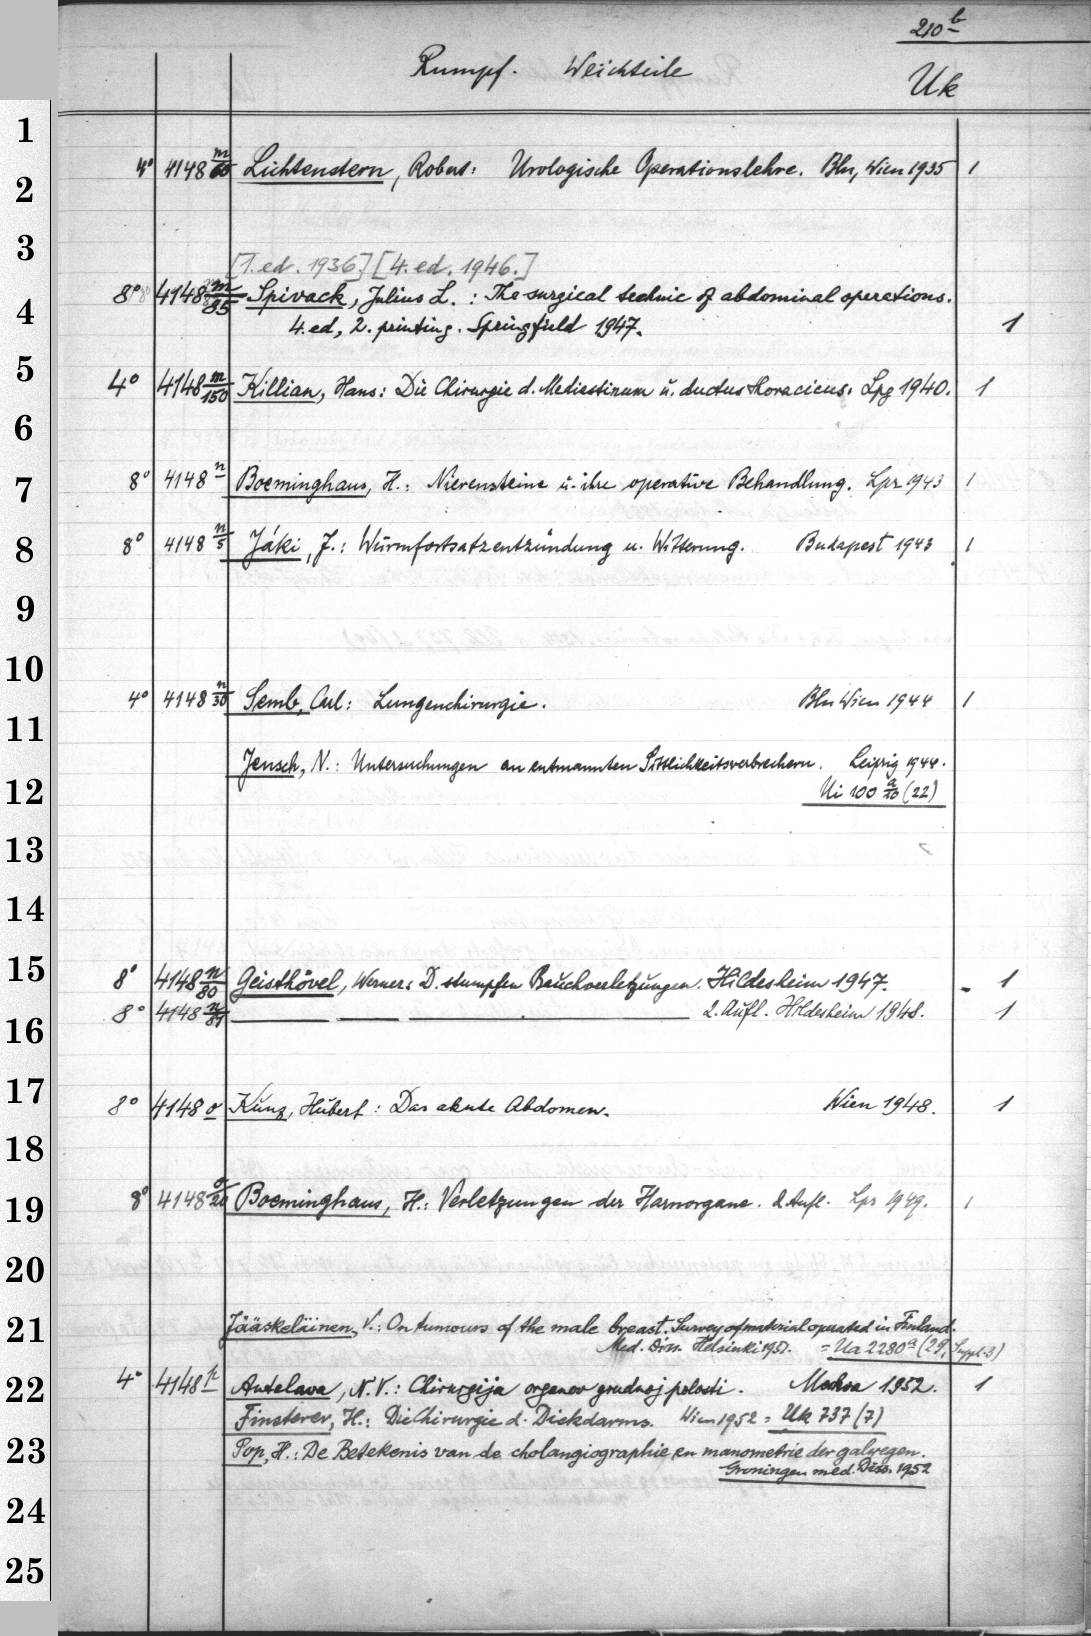 210 b
Rumpf. Weichteile
Uk
1
2
3
4
5
6
7
8
9
10
11
12
13
14
15
16
17
18
19
20
21
22
23
24
25
4° 4148 m/60 Lichtenstern, Robert: Urologische Operationslehre. Bln, Wien 1935 1
[1. ed. 1936] [4. ed. 1946.]
8° 4148 m/85 Spivack, Julius L.: The surgical technic of abdominal operations.
4. ed, 2. printing. Springfield 1947. 1
4° 4148 m/150 Killian, Hans: Die Chirurgie d. Mediastinum u. ductus thoracicus. Lpg 1940. 1
8° 4148 n Boeminghaus, H.: Nierensteine u. ihre operative Behandlung. Lpz 1943 1
8° 4148 n/5 Jáki, J.: Wurmfortsatzentzündung u. Witterung. Budapest 1943 1
4° 4148 n/30 Semb, Carl: Lungenchirurgie. Bln Wien 1944 1
Jensch, N.: Untersuchungen an entmannten Sittlichkeitsverbrechern. Leipzig 1944.
Ui 100 a/10 (22)
8° 4148 n/80 Geisthövel, Werner: D. stumpfen Bauchverletzungen. Hildesheim 1947. - 1
8° 4148 n/81 — — — 2. Aufl. Hildesheim 1948. 1
8° 4148 o Kunz, Hubert: Das akute Abdomen. Wien 1948. 1
8° 4148 o/20 Boeminghaus, H.: Verletzungen der Harnorgane. 2. Aufl. Lpz 1949. 1
Jääskeläinen, V.: On tumours of the male breast. Survey of material operated in Finland.
Med. Diss. Helsinki 1951. = Ua 2280 a (29, Suppl. 3)
4° 4148 p Antelava, N. V.: Chirurgija organov grudnoj polosti. Moskva 1952. 1
Finsterer, H.: Die Chirurgie d. Dickdarms. Wien 1952 = Uk 737 (7)
Pop, H.: De Betekenis van de cholangiographie en manometrie der galwegen.
Groningen med. Diss. 1952